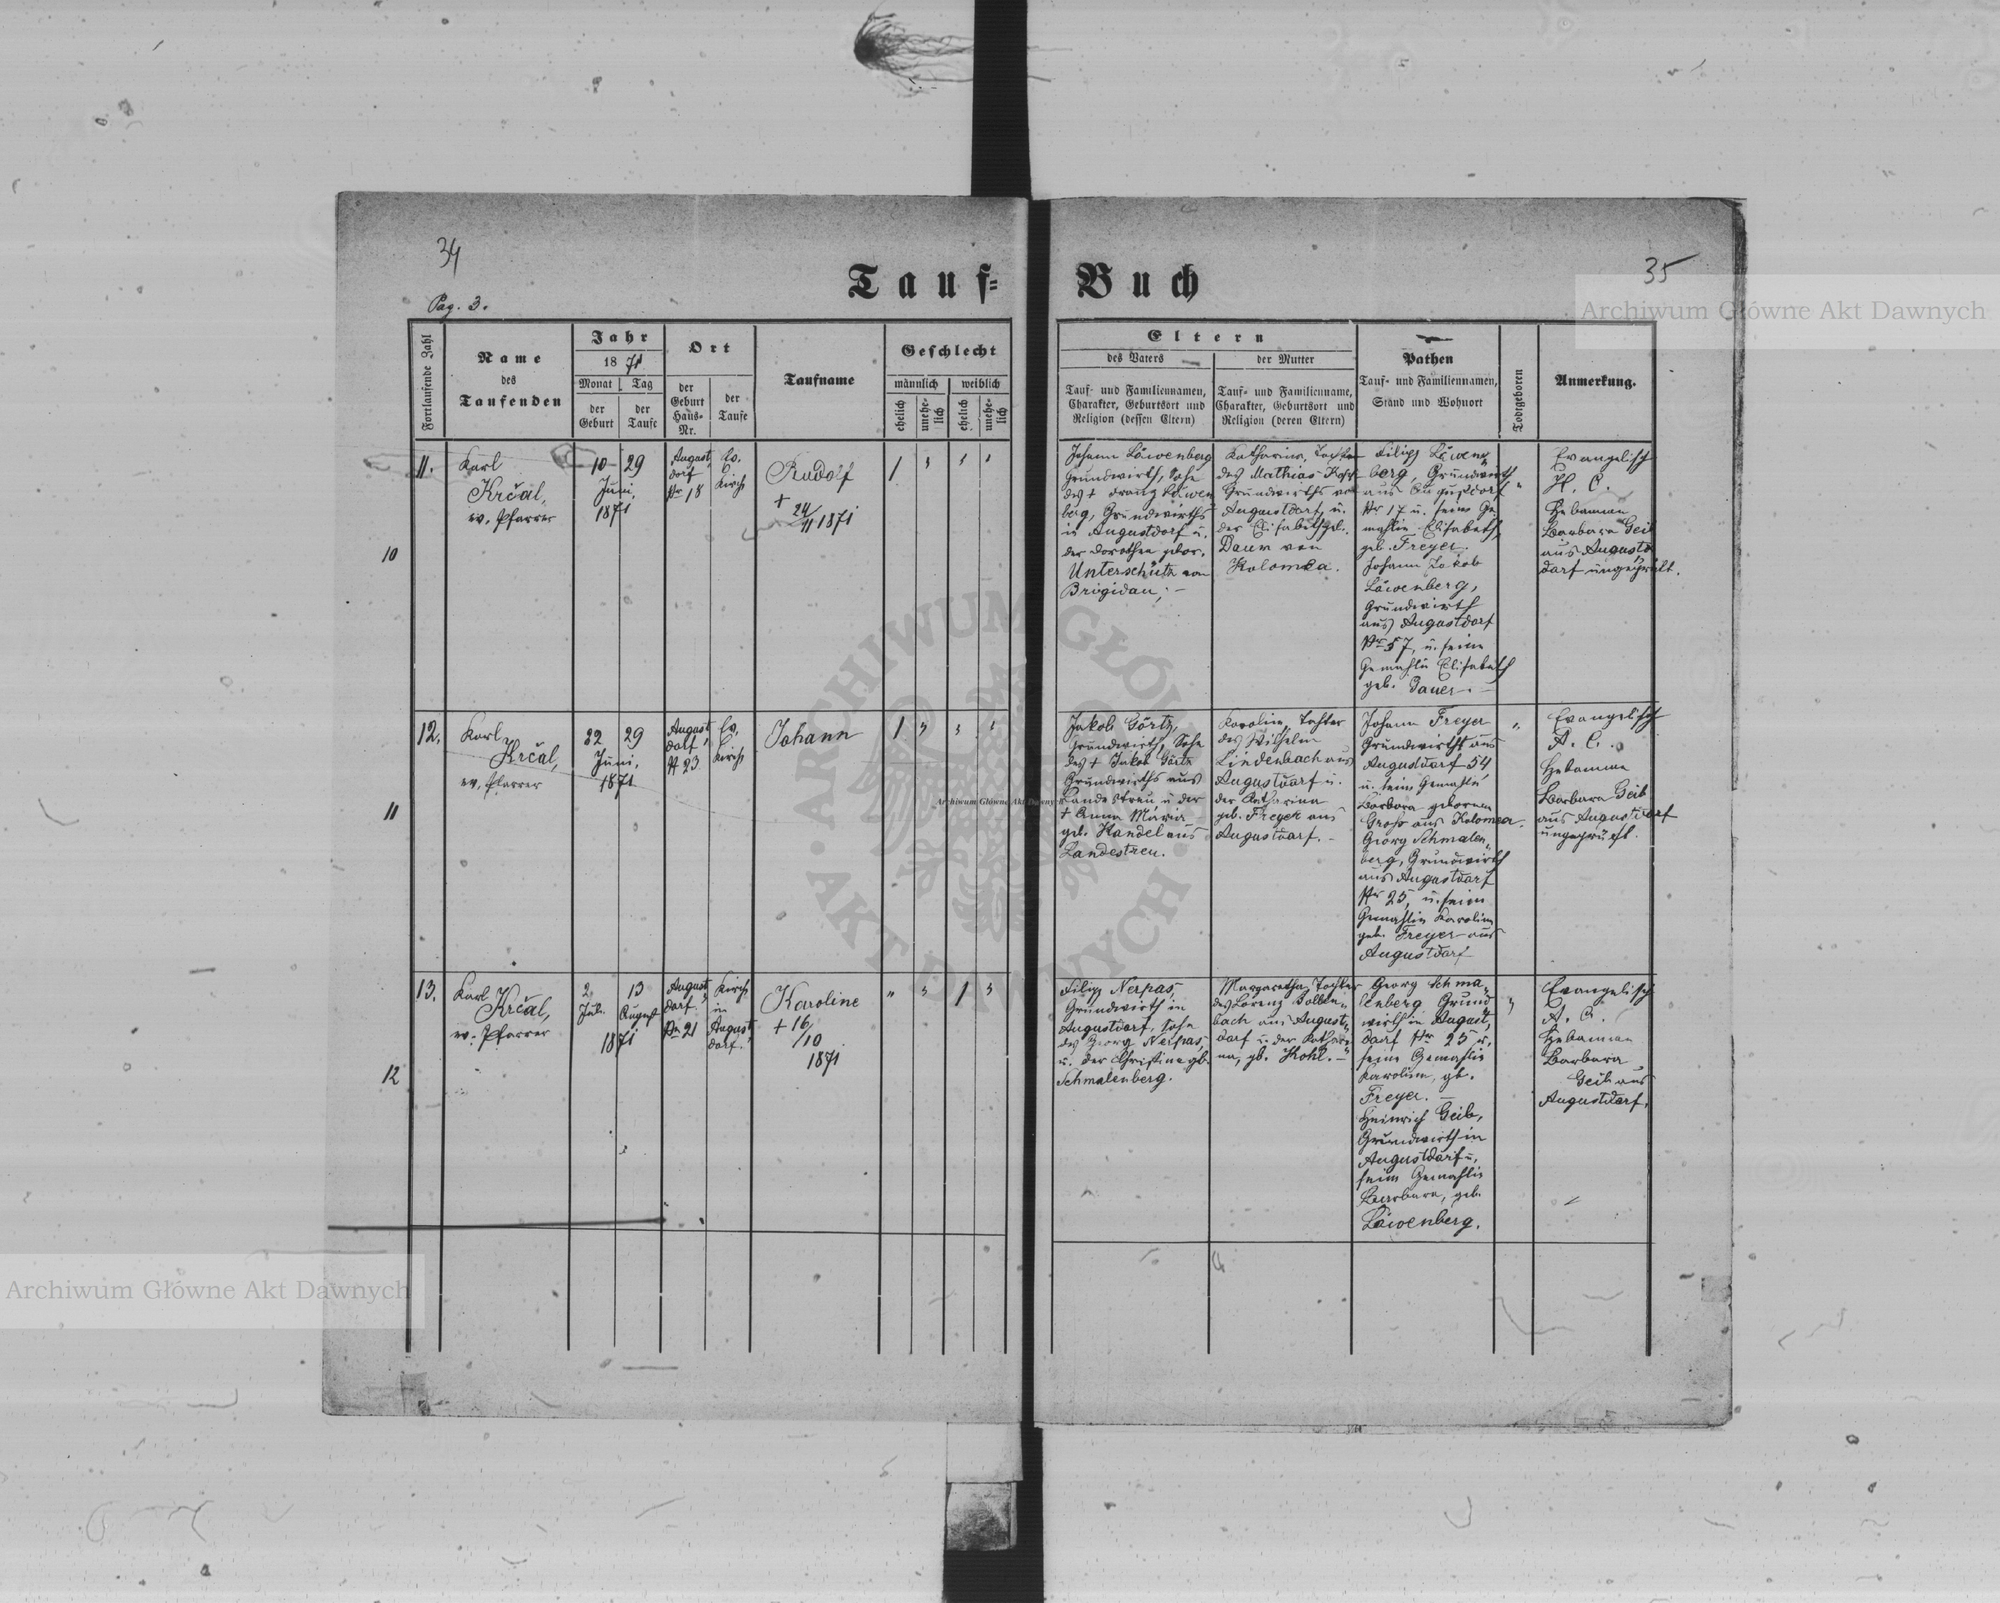 34
Pag. 3.
Tauf=
Buch
35
Archiwum Główne Akt Dawnych
Fortlaufende Zahl
Name
des
Taufenden
Jahr
1871
Monat
Tag
der
Geburt
der
Taufe
Ort
der
Geburt
Haus-
Nr.
der
Taufe
Taufname
Geschlecht
männlich
weiblich
ehelich
unehe-
lich
ehelich
unehe-
lich
Eltern
des Vaters
der Mutter
Tauf- und Familiennamen,
Charakter, Geburtsort und
Religion (dessen Eltern)
Tauf- und Familienname,
Charakter, Geburtsort und
Religion (deren Eltern)
Pathen
Tauf- und Familiennamen,
Stand und Wohnort
Todtgeboren
Anmerkung.
10
11.
Karl
Krčal,
ev. Pfarrer
10
29
Juni,
1871
August
dorf
Nr 18
Ev.
Kirche
Rudolf
+
24/11 1871
1
Johann Löwenberg
Grundwirth, Sohn
des + Franz Löwen
berg, Grundwirths
in Augustdorf u.
der Dorothea gebor.
Unterschütz von
Brigidau; –
Katharina, Tochter
des Mathias
Grundwirths
Augustdorf, u.
der Elisabeth geb.
Dauer von
Kolomea.
Filipp Löwen
berg, Grundwirth
aus Augustdorf
Nr 17 u. seine Ge
mahlin Elisabeth,
geb. Freyer.
Johann Jakob
Löwenberg,
Grundwirth
aus Augustdorf
Nr 57, u. seine
Gemahlin Elisabeth
geb. Dauer. –
Evangelisch
H. C.
Hebamme
Barbara Geib
aus Augusts
dorf ungeprüft.
11
12.
Karl
Krčal,
ev. Pfarrer
22
29
Juni,
1871
August
dorf,
N 23
Ev.
Kirche
Johann
1
Jakob Görtz,
Grundwirth, Sohn
des + Jakob Görtz
Grundwirths aus
Landestreu u der
+ Anna Maria
geb. Handel aus
Landestreu.
Karolina, Tochter
des Wilhelm
Lindenbach aus
Augustdorf u.
der Katharina
geb. Freyer aus
Augustdorf. –
Johann Freyer
Grundwirth aus
Augustdorf 54
u. seine Gemahlin
Barbara geborene
Groß aus Kolomea.
Georg Schmalen,
berg, Grundwirth
aus Augustdorf
Nr 25, u. seine
Gemahlin Karolina
geb. Freyer aus
Augustdorf
Evangelisch
A. C.
Hebamme
Barbara Geib
aus Augustdorf
ungeprüft.
Archiwum Główne Akt Dawnych
12
13.
Karl
Krčal,
ev. Pfarrer
2
Juli
13
August
1871
August
dorf
Nr 21
Kirche
in
August
dorf.
Karoline
+ 16/10
1871
1
Filipp Nerpas
Grundwirth in
Augustdorf, Sohn
des Georg Nerpas,
u. der Christina geb.
Schmalenberg.
Margaretha, Tochter
des Lorenz Bollen
bach aus August,
dorf u. der Kathari
na, gb. Kohl. –
Georg Schma
lenberg Grund
wirth in August,
dorf Nr 25 u.
seine Gemahlin
Karolina, gb.
Freyer. –
Heinrich Geib,
Grundwirth in
Augustdorf u.
seine Gemahlin
Barbara, geb.
Löwenberg.
Evangelisch
A. C.
Hebamme
Barbara
Geib aus
Augustdorf.
ARCHIWUM GŁÓWNE AKT DAWNYCH
Archiwum Główne Akt Dawnych